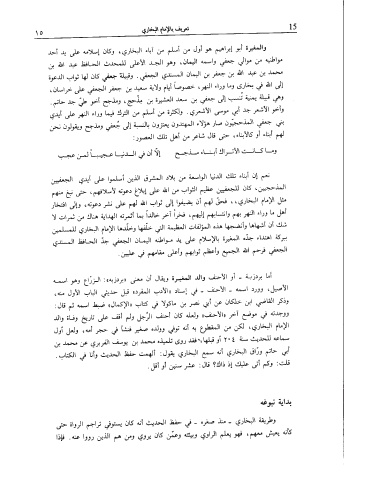 15
تعريف بالإمام البخاري
١٥
والمغيرة أبو إبراهيم هو أول من أسلم من آباء البخاري، وكان إسلامه على يد أحد
مواطنيه من موالي جعفي واسمه اليمان، وهو الجد الأعلى للمحدث الحافظ عبد الله بن
محمد بن عبد الله بن جعفر بن اليمان المسندي الجعفي. وقبيلة جعفي كان لها ثواب الدعوة
إلى الله في بخارى وما وراء النهر، خصوصاً أيام ولاية سعيد بن جعفر الجعفي على خراسان،
وهي قبيلة يمنية تُنسب إلى جعفي بن سعد العشيرة بن مذحج، ومذحج أخو طيّ جد حاتم.
وأخو الأشعر جد أبي موسى الأشعري. ولكثرة من أسلم من الترك فيما وراء النهر على أيدي
بني جعفي المذحجيّين صار هؤلاء المهتدون يعتزون بالنسبة إلى جُعفي ومذحج ويقولون نحن
لهم أبناء أو كالأبناء، حتى قال شاعر من أهل تلك العصور:
وما كانت الأتراك أبناء مذحج إلا أن في الدنيا عجيباً لمن عجب
نعم إن أبناء تلك الدنيا الواسعة من بلاد المشرق الذين أسلموا على أيدي الجعفيين
المذحجيين، كان للجعفيين عظيم الثواب من الله على إبلاغ دعوته لأسلافهم، حتى نبغ منهم
مثل الإمام البخاري، فحقّ لهم أن يضيفوا إلى ثواب الله لهم على نشر دعوته، وإلى افتخار
أهل ما وراء النهر بهم وانتسابهم إليهم، فخراً آخر خالداً بما أثمرته الهداية هناك من ثمرات لا
شك أن أشهاها وأنضجها هذه المؤلفات العظيمة التي خلّفها وخلّدها الإمام البخاري للمسلمين
ببركة اهتداء جدّه المغيرة بالإسلام على يد مواطنه اليمان الجعفي جدّ الحافظ المسندي
الجعفي فرحم الله الجميع وأعظم ثوابهم وأعلى مقامهم في عليين.
أما بردزبة ـ أو الأحنف والد المغيرة ويقال أن معنى «بردزبة»: الزرّاع وهو اسمه
الأصيل، وورد اسمه ـ الأحنف ـ في إسناد «الأدب المفرد» قبل حديثي الباب الأول منه،
وذكر القاضي ابن خلكان عن أبي نصر بن ماكولا في كتاب «الإكمال» ضبط اسمه ثم قال:
ووجدته في موضع آخر «الأحنف» ولعله كان أحنف الرِّجل ولم أقف على تاريخ وفاة والد
الإمام البخاري، لكن من المقطوع به أنه توفي وولده صغير فنشأ في حجر أمه. ولعل أول
سماعه للحديث سنة ٢٠٤ أو قبلها، فقد روى تلميذه محمد بن يوسف الفربري عن محمد بن
أبي حاتم ورّاق البخاري أنه سمع البخاري يقول: ألهمت حفظ الحديث وأنا في الكتاب.
قلت: وكم أتى عليك إذ ذاك؟ قال: عشر سنين أو أقل.
بداية نبوغه
وطريقة البخاري ـ منذ صغره ـ في حفظ الحديث أنه كان يستوفي تراجم الرواة حتى
كأنه يعيش معهم، فهو يعلم الراوي وبيئته وعمّن كان يروي ومن هم الذين رووا عنه. فإذا